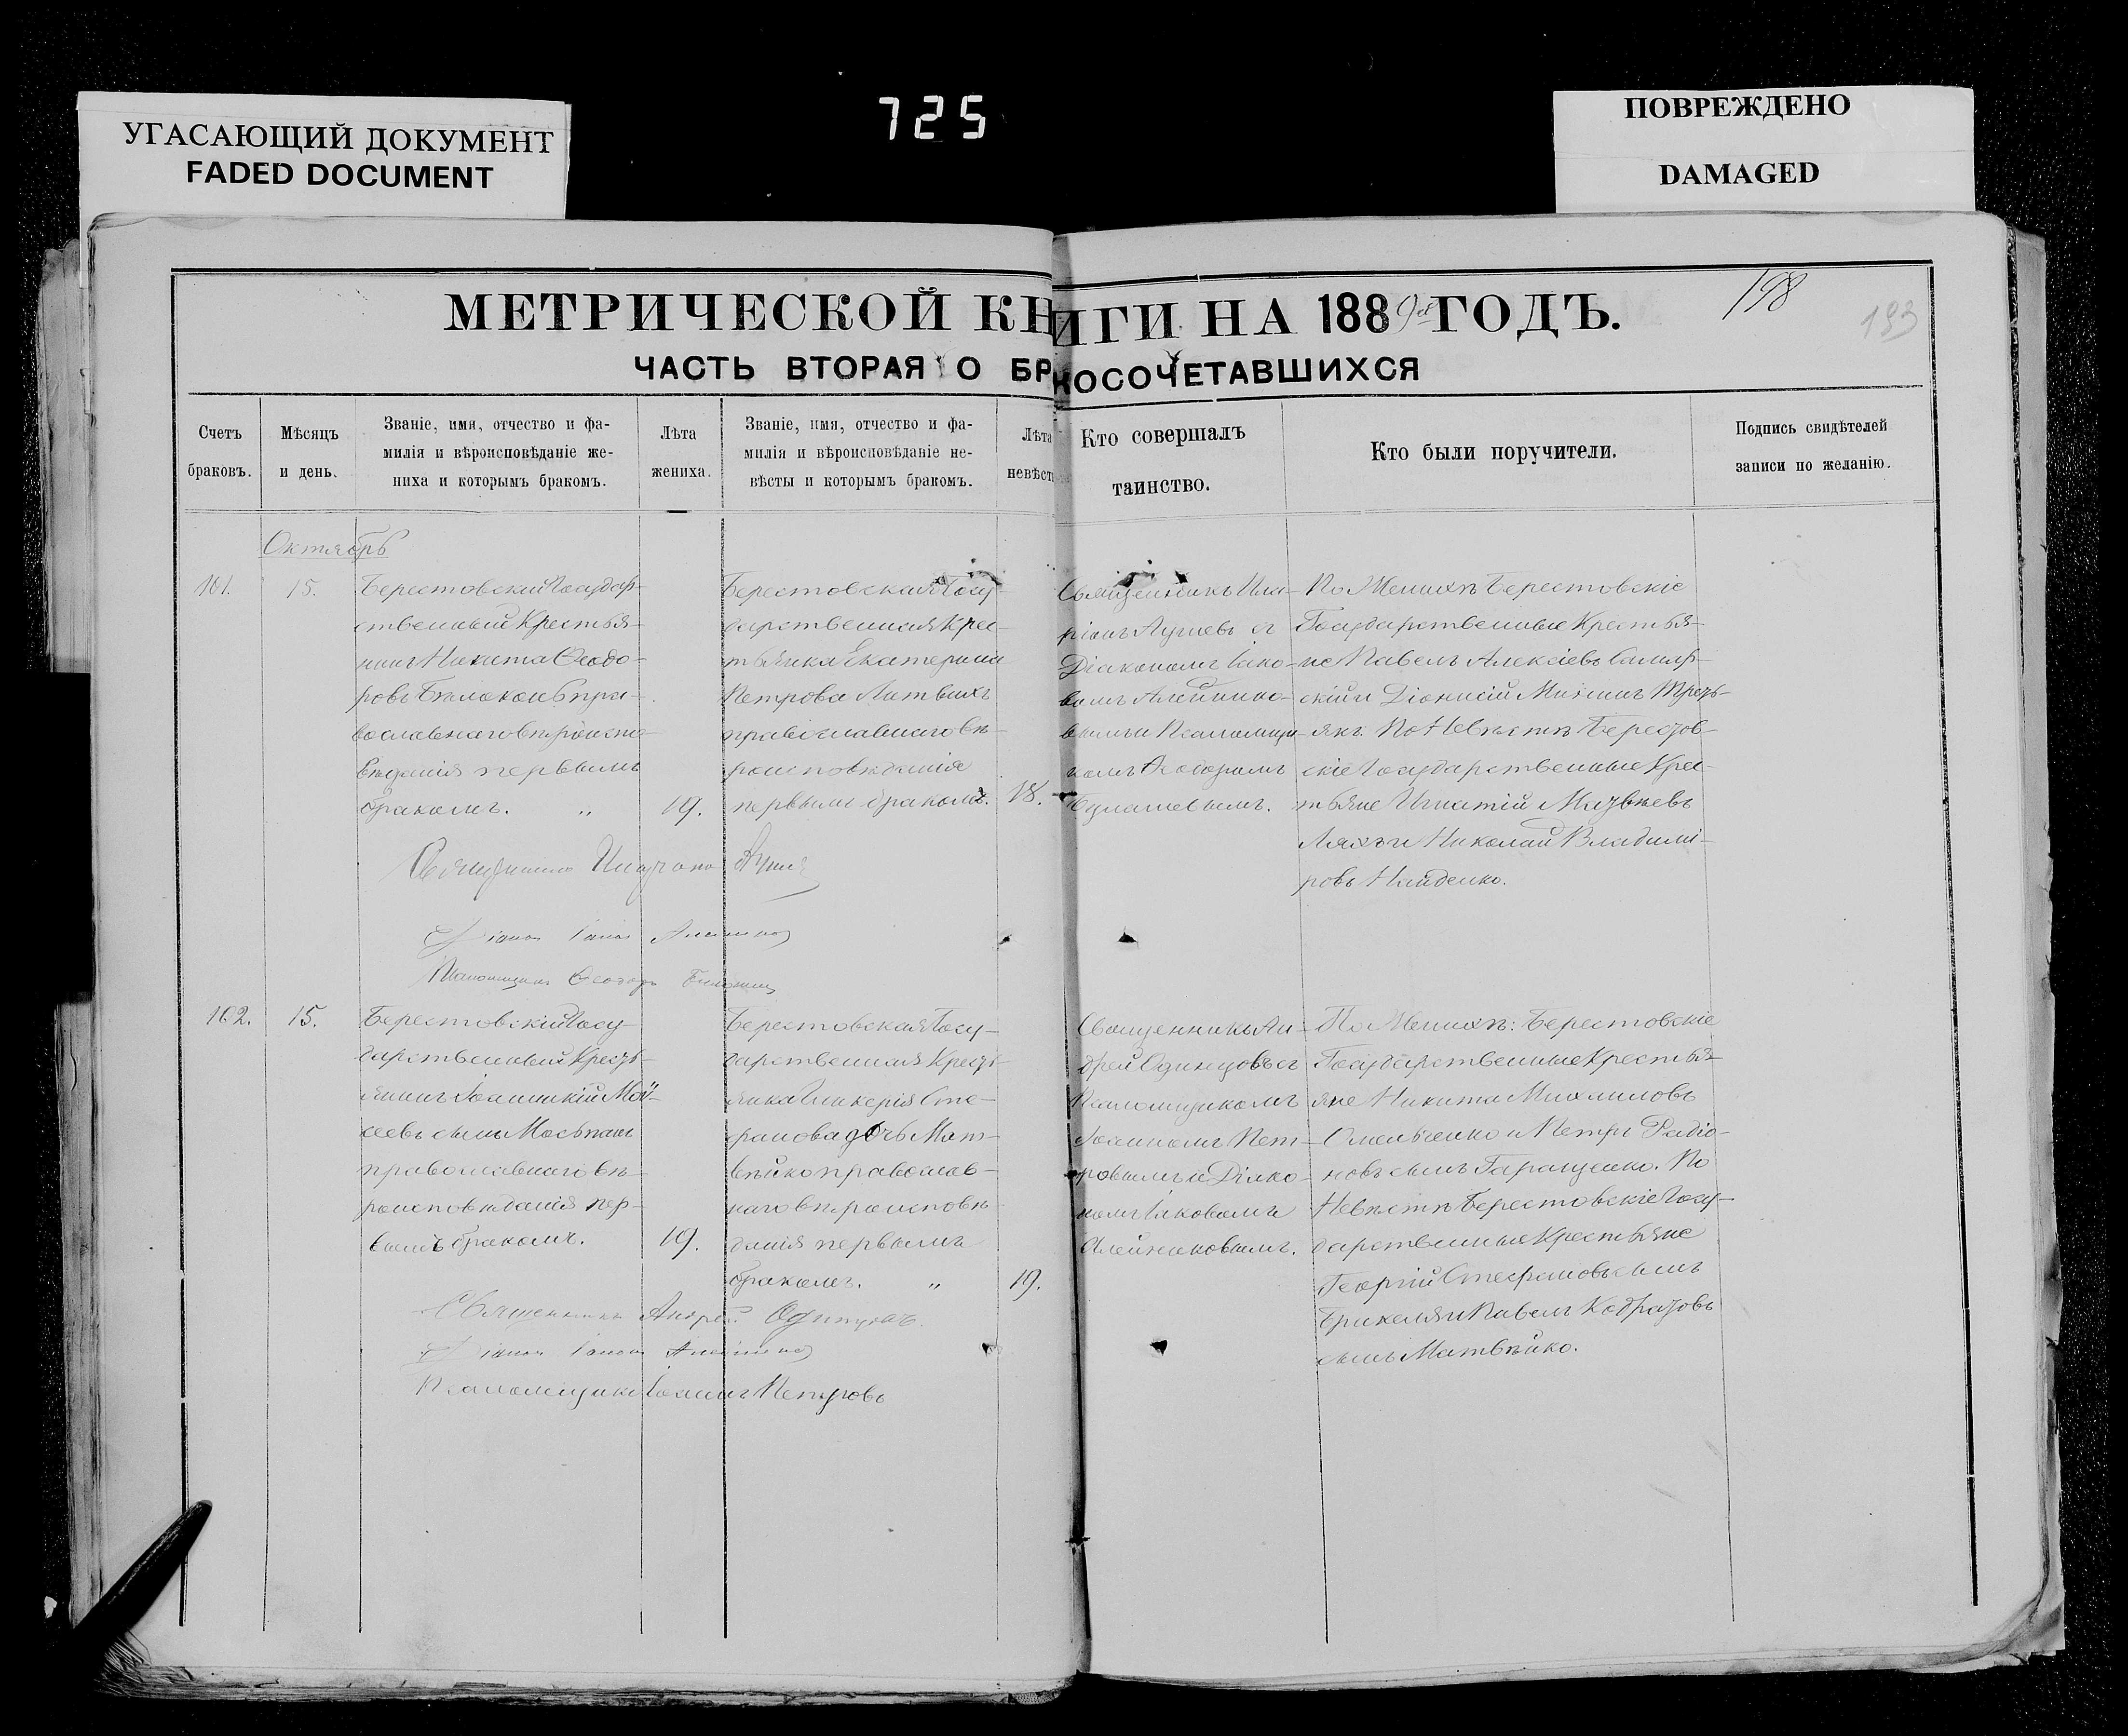 725
УГАСАЮЩИЙ ДОКУМЕНТ
FADED DOCUMENT
ПОВРЕЖДЕНО
DAMAGED
198
193
МЕТРИЧЕСКОЙ КНИГИ НА 1889й ГОДЪ.
ЧАСТЬ ВТОРАЯ О БРАКОСОЧЕТАВШИХСЯ
Счетъ
браковъ.
Мѣсяцъ
и день.
Званіе, имя, отчество и фа-
милія и вѣроисповѣданіе же-
ниха и которымъ бракомъ.
Лѣта
жениха.
Званіе, имя, отчество и фа-
милія и вѣроисповѣданіе не-
вѣсты и которымъ бракомъ.
Лѣта
невѣст
Кто совершалъ
таинство.
Кто были поручители.
Подпись свидѣтелей
записи по желанію.
Октябрь
101.
15.
Берестовскій Государ-
ственный Крестья-
нинъ Никита Ѳеодо-
ровъ Бѣлоконь пра-
вославнаго вѣроиспо-
вѣданія первымъ
бракомъ. „
19.
Берестовская Госу-
дарственная Крес-
тьянка Екатерина
Петрова Литвихъ
православнаго вѣ-
роисповѣданія
первымъ бракомъ.
18.
Священникъ Ила-
ріонъ Луневъ съ
Діакономъ Іако-
вомъ Алейнико-
вымъ и Псаломщи-
комъ Ѳеодоромъ
По Женихѣ Берестовскіе
Государственные Крестья-
не Павелъ Алексіевъ
скій и Діонисій
якъ. По Невѣстѣ Берестов-
скіе Государственные Крес-
тьяне Игнатій Матвѣевъ
Ляхъ и Николай Владимі-
ровъ Найденко.
Священникъ Иларіонъ Луневъ
Діаконъ Іаковъ Алейников
Псаломщикъ Ѳеодоръ
102.
15.
Берестовскій Госу-
дарственный Кресть-
янинъ Іоанникій Мой-
сеевъ сынъ Мосьпанъ
православнаго вѣ-
роисповѣданія пер-
вымъ бракомъ.
19.
Берестовская Госу-
дарственная Кресть-
янка Гликерія Сте-
фанова дочь Мат-
вѣйко православ-
наго вѣроисповѣ-
данія первымъ
бракомъ. „
19.
Священникъ Ан-
дрей Одинцовъ съ
Псаломщикомъ
Іоанномъ Пет-
ровымъ и Діако-
номъ Іаковомъ
Алейниковымъ.
По Женихѣ: Берестовскіе
Государственные Кресть-
яне Никита Михаиловъ
Омельченко и Петръ Радіо-
новъ сынъ Гаращенко. По
Невѣстѣ Берестовскіе Госу-
дарственные Крестьяне
Георгій Стефановъ сынъ
и Павелъ
сынъ Матвѣйко.
Священникъ Андрей Одинцовъ.
Діаконъ Іаковъ Алейников
Псаломщикъ Іоаннъ Петровъ